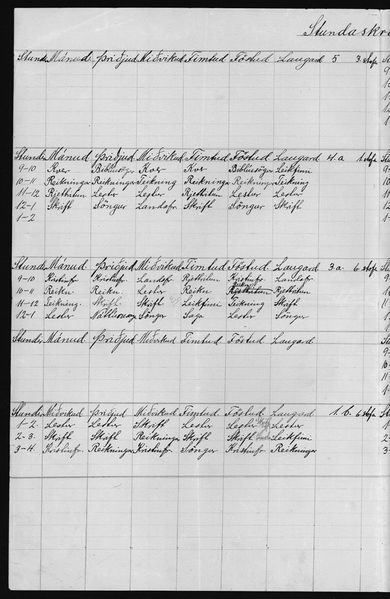 Stundaskr
Stundir Mánud Þriðjud Miðvikud Fimtud Föstud Laugard 5 3. stofa
Stundir Mánud Þriðjud Miðvikud Fimtud Föstud Laugard 4 a 1 stofa
9-10 Kver Biblíusögur Kver Kver Biblíusögur Leikfimi
10-11 Reikninga Reikninga Teikning Reikninga Reikninga Teikning
11-12 Rjettritun Lestr Lestr Rjettritun Lestr Lestr
12-1 Skrift Söngur Landafr. Skrift Söngur Skrift
1-2
Stundir Mánud Þriðjud Miðvikud Fimtud Föstud Laugard 3 a 6 stofa
9-10 Kristinfr Kristinfr Landafr Rjettritun Kristinfr Landafr
10-11 Reikn Reikn Lestr Reikn Rjettritun
11-12 Teikning Skrift Skrift Leikfimi Teikning Skrift
12-1 Lestr Náttúrusaga Söngur Saga Lestr Söngur
Stundir Mánud Þriðjud Miðvikud Fimtud Föstud Laugard
Stundir Miðvikud Þriðjud Miðvikud Fimtud Föstud Laugard 1. b. 6 stofa
1-2. Lestr Lestr Skrift Lestr Lestr Lestr
2-3. Skrift Skrift Reikninga Skrift Skrift Leikfimi
3-4. Kristinfr. Reikninga Kristinfr Söngur Kristinfr Reikningur